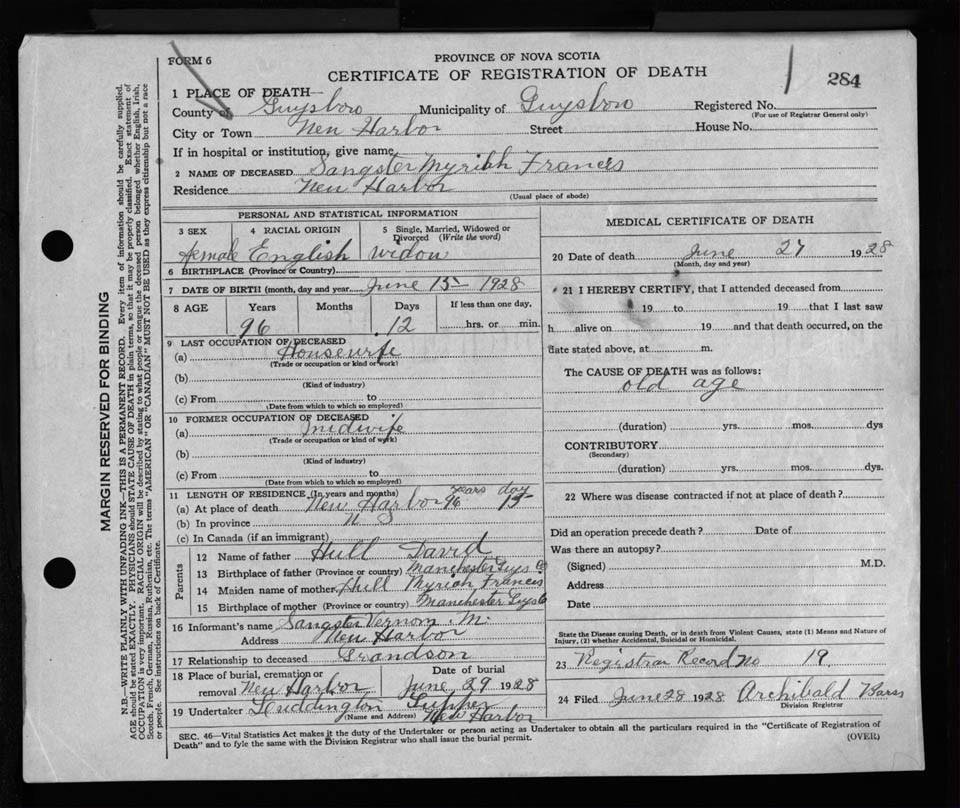 FORM 6
PROVINCE OF NOVA SCOTIA
CERTIFICATE OF REGISTRATION OF DEATH
284
1 PLACE OF DEATH—
County of Guysboro Municipality of Guysboro Registered No.
(For use of Registrar General only)
City or Town New Harbor Street House No.
If in hospital or institution, give name
2 NAME OF DECEASED Sangster Myriah Francis
Residence New Harbor
(Usual place of abode)
PERSONAL AND STATISTICAL INFORMATION
3 SEX 4 RACIAL ORIGIN 5 Single, Married, Widowed or Divorced (Write the word)
female English widow
6 BIRTHPLACE (Province or Country)
7 DATE OF BIRTH (month, day and year) June 15 1928
8 AGE Years Months Days If less than one day,
96 12 hrs. or min.
9 LAST OCCUPATION OF DECEASED
(a) Housewife
(Trade or occupation or kind of work)
(b)
(Kind of industry)
(c) From to
(Date from which to which so employed)
10 FORMER OCCUPATION OF DECEASED
(a) midwife
(Trade or occupation or kind of work)
(b)
(Kind of industry)
(c) From to
(Date from which to which so employed)
11 LENGTH OF RESIDENCE (In years and months) years day
(a) At place of death New Harbor 96
(b) In province N S
(c) In Canada (if an immigrant)
Parents
12 Name of father Hull David
13 Birthplace of father (Province or country) Manchester Guys Co
14 Maiden name of mother Hull Myriah Francis
15 Birthplace of mother (Province or country) Manchester Guys Co
16 Informant's name Sangster Vernom M.
Address New Harbor
17 Relationship to deceased Grandson
18 Place of burial, cremation or removal New Harbor Date of burial June 29 1928
19 Undertaker Luddington
(Name and Address) New Harbor
MEDICAL CERTIFICATE OF DEATH
20 Date of death June 27 1928
(Month, day and year)
21 I HEREBY CERTIFY, that I attended deceased from
19 to 19 that I last saw
h alive on 19 and that death occurred, on the
date stated above, at m.
The CAUSE OF DEATH was as follows:
old age
(duration) yrs. mos. dys
CONTRIBUTORY
(Secondary)
(duration) yrs. mos. dys.
22 Where was disease contracted if not at place of death?
Did an operation precede death? Date of
Was there an autopsy?
(Signed) M.D.
Address
Date
State the Disease causing Death, or in death from Violent Causes, state (1) Means and Nature of
Injury, (2) whether Accidental, Suicidal or Homicidal.
23 Registrar Record No 19.
24 Filed June 28 1928 Archibald
Division Registrar
SEC. 46—Vital Statistics Act makes it the duty of the Undertaker or person acting as Undertaker to obtain all the particulars required in the "Certificate of Registration of
Death" and to fyle the same with the Division Registrar who shall issue the burial permit.
(OVER)
MARGIN RESERVED FOR BINDING
N.B.—WRITE PLAINLY WITH UNFADING INK—THIS IS A PERMANENT RECORD. Every item of information should be carefully supplied.
AGE should be stated EXACTLY. PHYSICIANS should STATE CAUSE OF DEATH in plain terms, so that it may be properly classified. Exact statement of
OCCUPATION is very important. RACIAL ORIGIN will be described by stating to what people or tongue the deceased person belonged whether English, Irish,
Scotch, French, German, Russian, Ruthenian, etc. The terms "AMERICAN" OR "CANADIAN" MUST NOT BE USED as they express citizenship but not a race
or people. See instructions on back of Certificate.